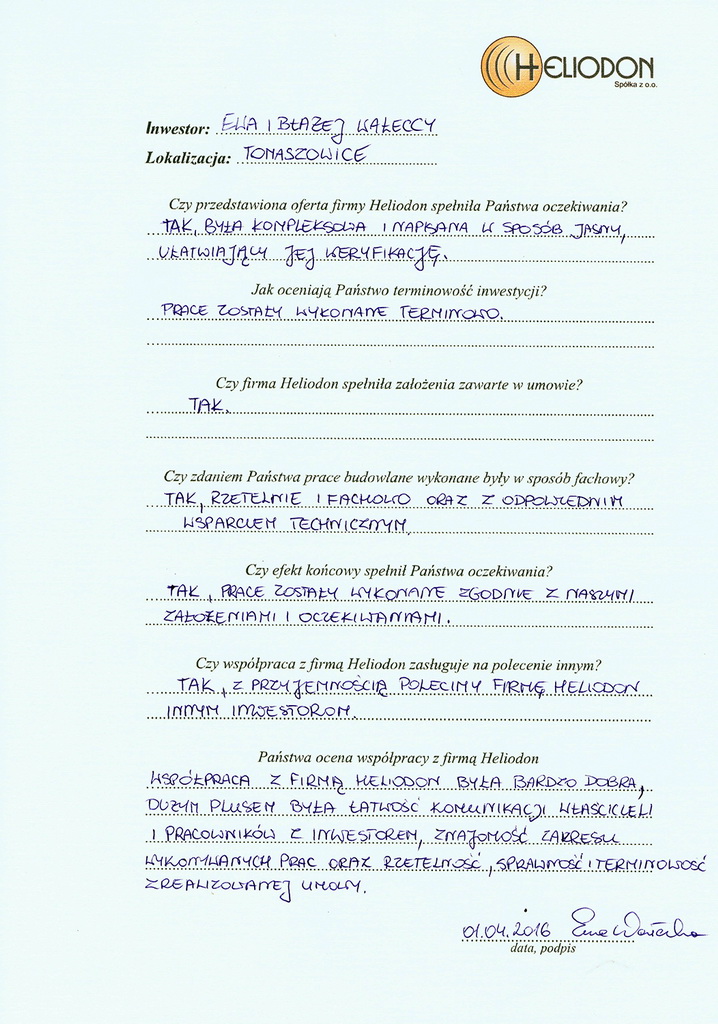 HELIODON
Spółka z o.o.
Inwestor: EWA I BŁAŻEJ WAŁECCY
Lokalizacja: TOMASZOWICE
Czy przedstawiona oferta firmy Heliodon spełniła Państwa oczekiwania?
TAK, BYŁA KOMPLEKSOWA I NAPISANA W SPOSÓB JASNY,
UŁATWIAJĄCY JEJ WERYFIKACJĘ.
Jak oceniają Państwo terminowość inwestycji?
PRACE ZOSTAŁY WYKONANE TERMINOWO.
Czy firma Heliodon spełniła założenia zawarte w umowie?
TAK.
Czy zdaniem Państwa prace budowlane wykonane były w sposób fachowy?
TAK, RZETELNIE I FACHOWO ORAZ Z ODPOWIEDNIM
WSPARCIEM TECHNICZNYM.
Czy efekt końcowy spełnił Państwa oczekiwania?
TAK, PRACE ZOSTAŁY WYKONANE ZGODNIE Z NASZYMI
ZAŁOŻENIAMI I OCZEKIWANIAMI.
Czy współpraca z firmą Heliodon zasługuje na polecenie innym?
TAK, Z PRZYJEMNOŚCIĄ POLECIMY FIRMĘ HELIODON
INNYM INWESTOROM.
Państwa ocena współpracy z firmą Heliodon
WSPÓŁPRACA Z FIRMĄ HELIODON BYŁA BARDZO DOBRA,
DUŻYM PLUSEM BYŁA ŁATWOŚĆ KOMUNIKACJI WŁAŚCICIELI
I PRACOWNIKÓW Z INWESTOREM, ZNAJOMOŚĆ ZAKRESU
WYKONYWANYCH PRAC ORAZ RZETELNOŚĆ, SPRAWNOŚĆ I TERMINOWOŚĆ
ZREALIZOWANEJ UMOWY.
01.04.2016 Ewa Wałecka
data, podpis